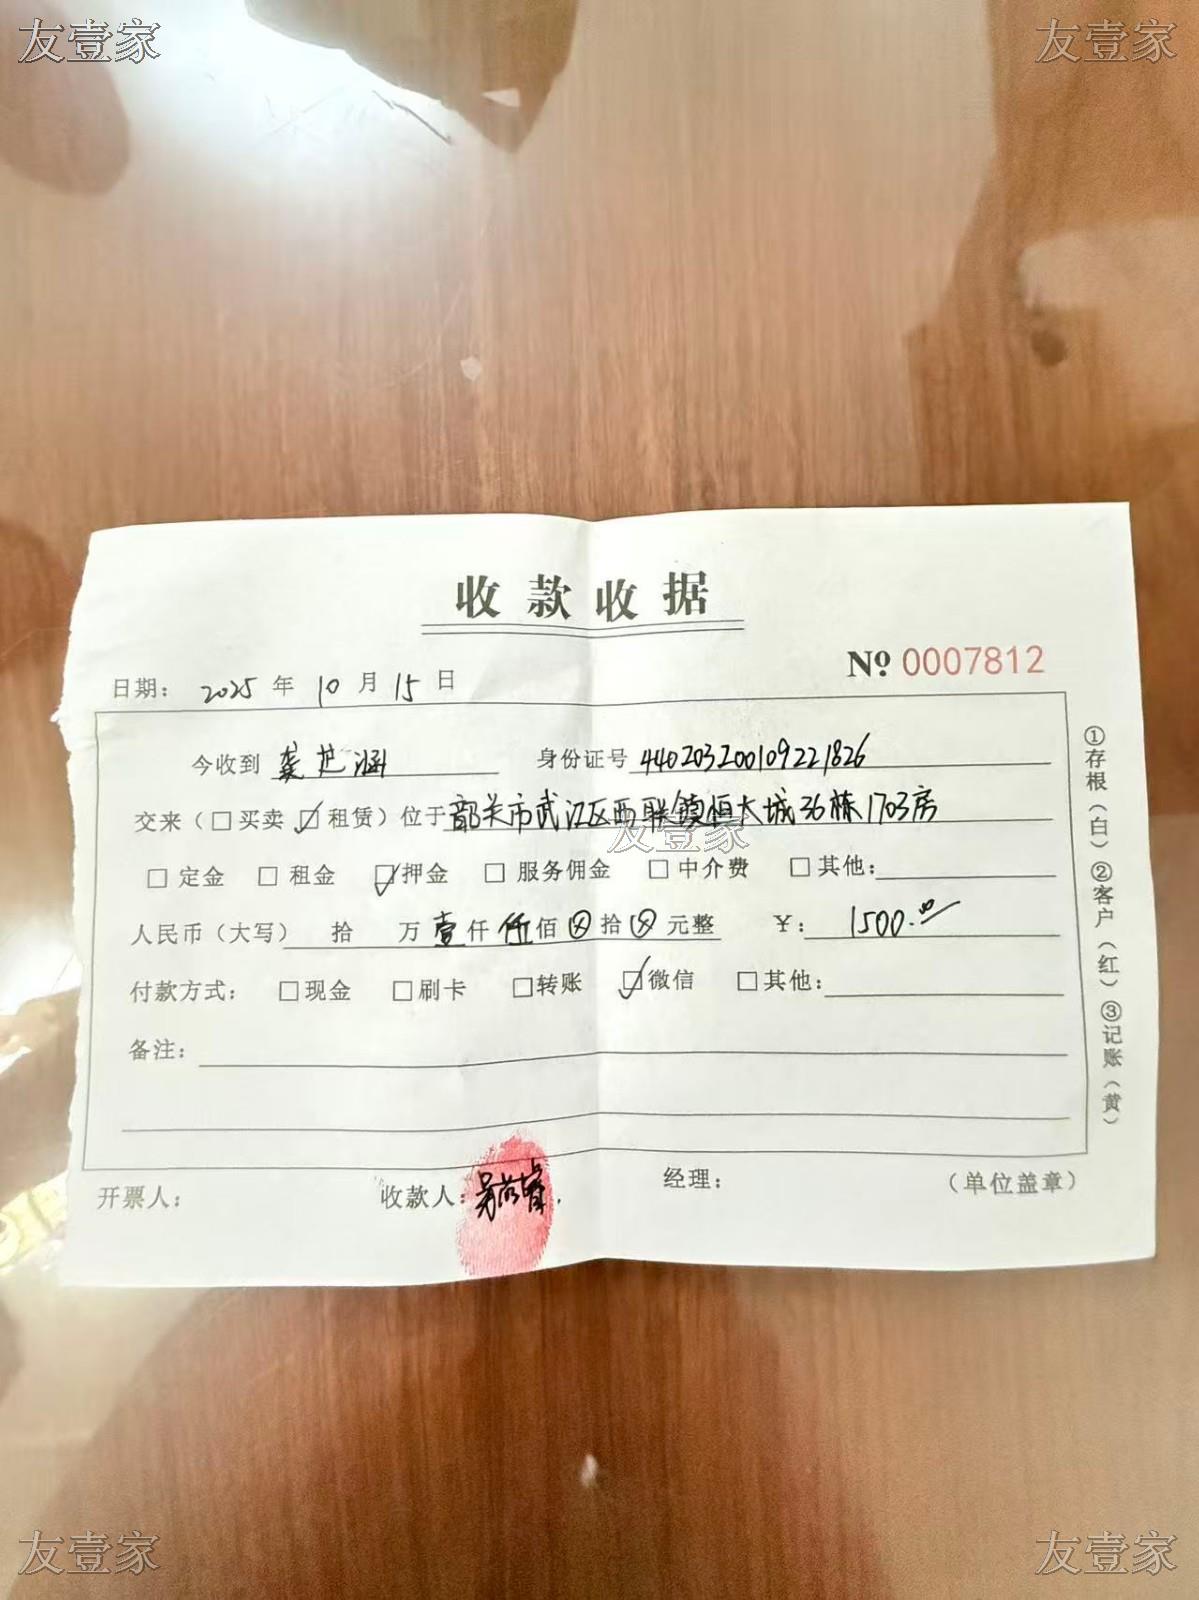 友壹家 友壹家
收款收据
№ 0007812
日期： 2025 年 10 月 15 日
今收到 龚芷涵 身份证号 440203200109221826
交来（□买卖 ☑租赁）位于 韶关市武江区西联镇恒大城36栋1703房
友壹家
□定金 □租金 ☑押金 □服务佣金 □中介费 □其他：
人民币（大写） 拾 万 壹仟 伍佰 ⊗拾 ⊗元整 ￥： 1500.00
付款方式： □现金 □刷卡 □转账 ☑微信 □其他：
备注：
开票人： 收款人： 吴 经理： （单位盖章）
①存根（白）②客户（红）③记账（黄）
友壹家 友壹家